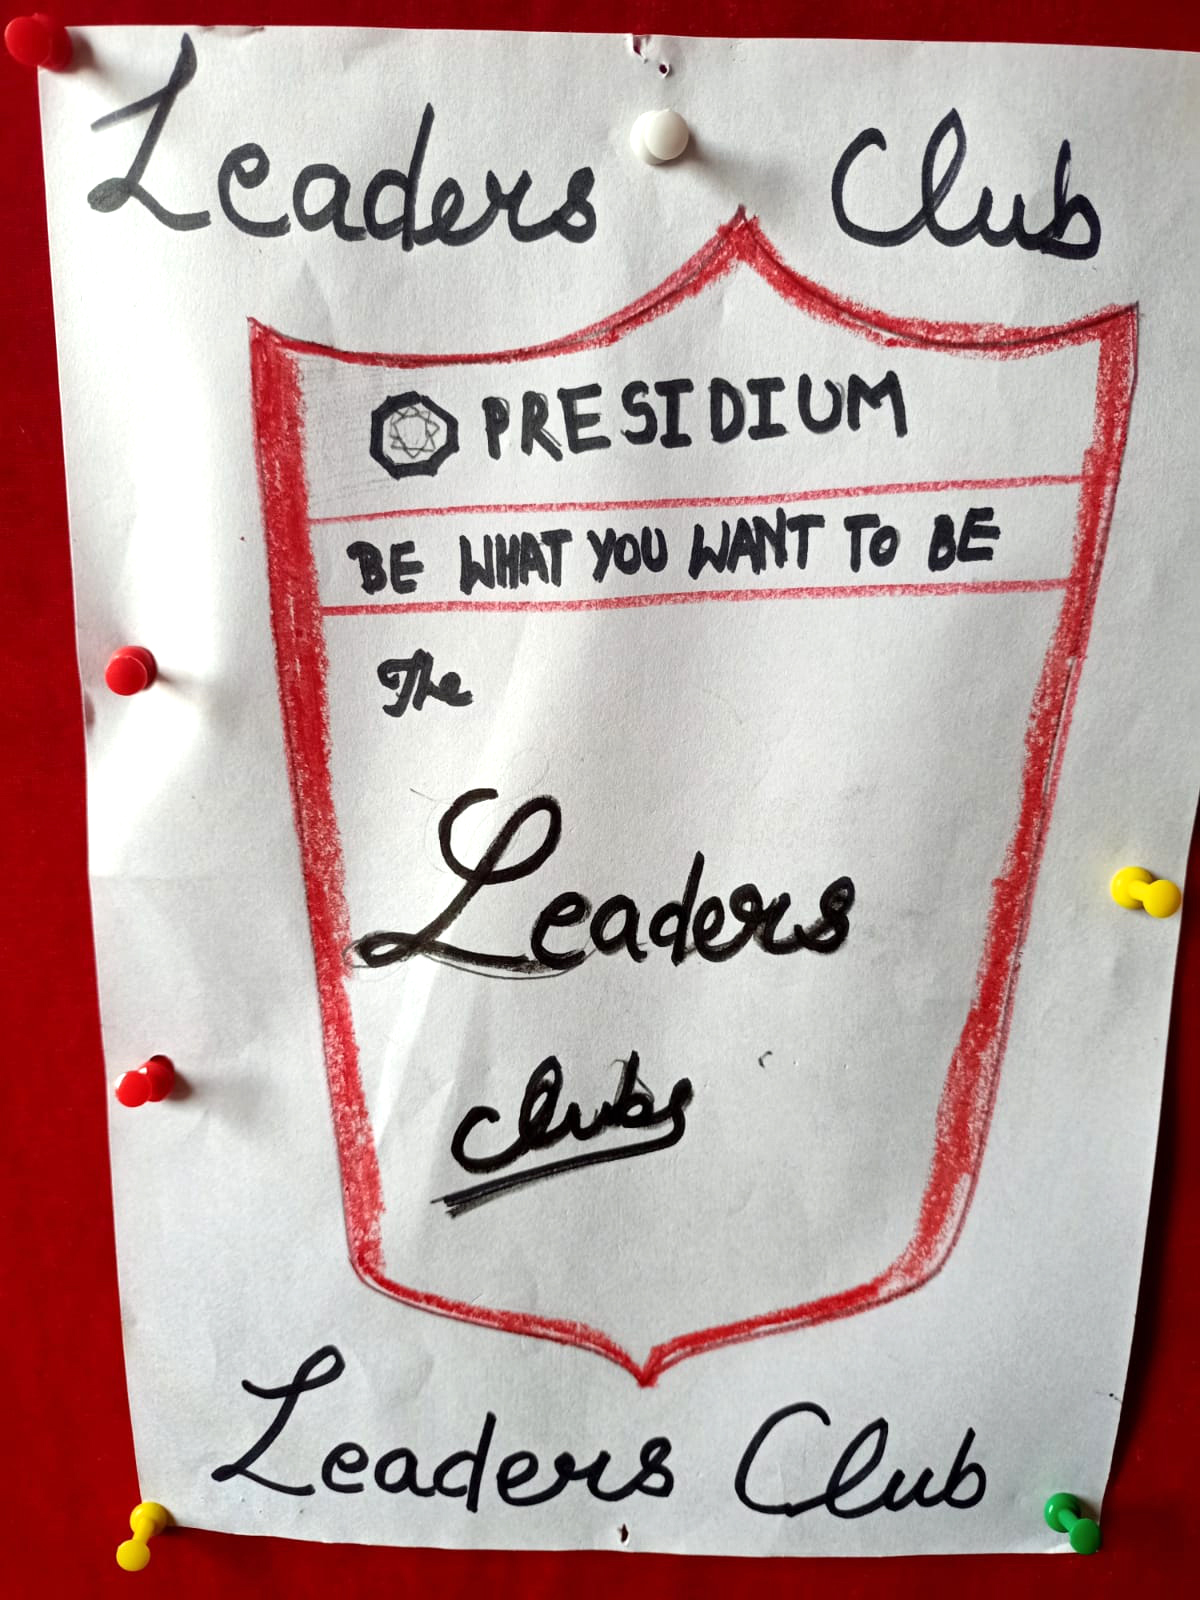 Leaders Club
PRESIDIUM
BE WHAT YOU WANT TO BE
The
Leaders
Clubs
Leaders Club